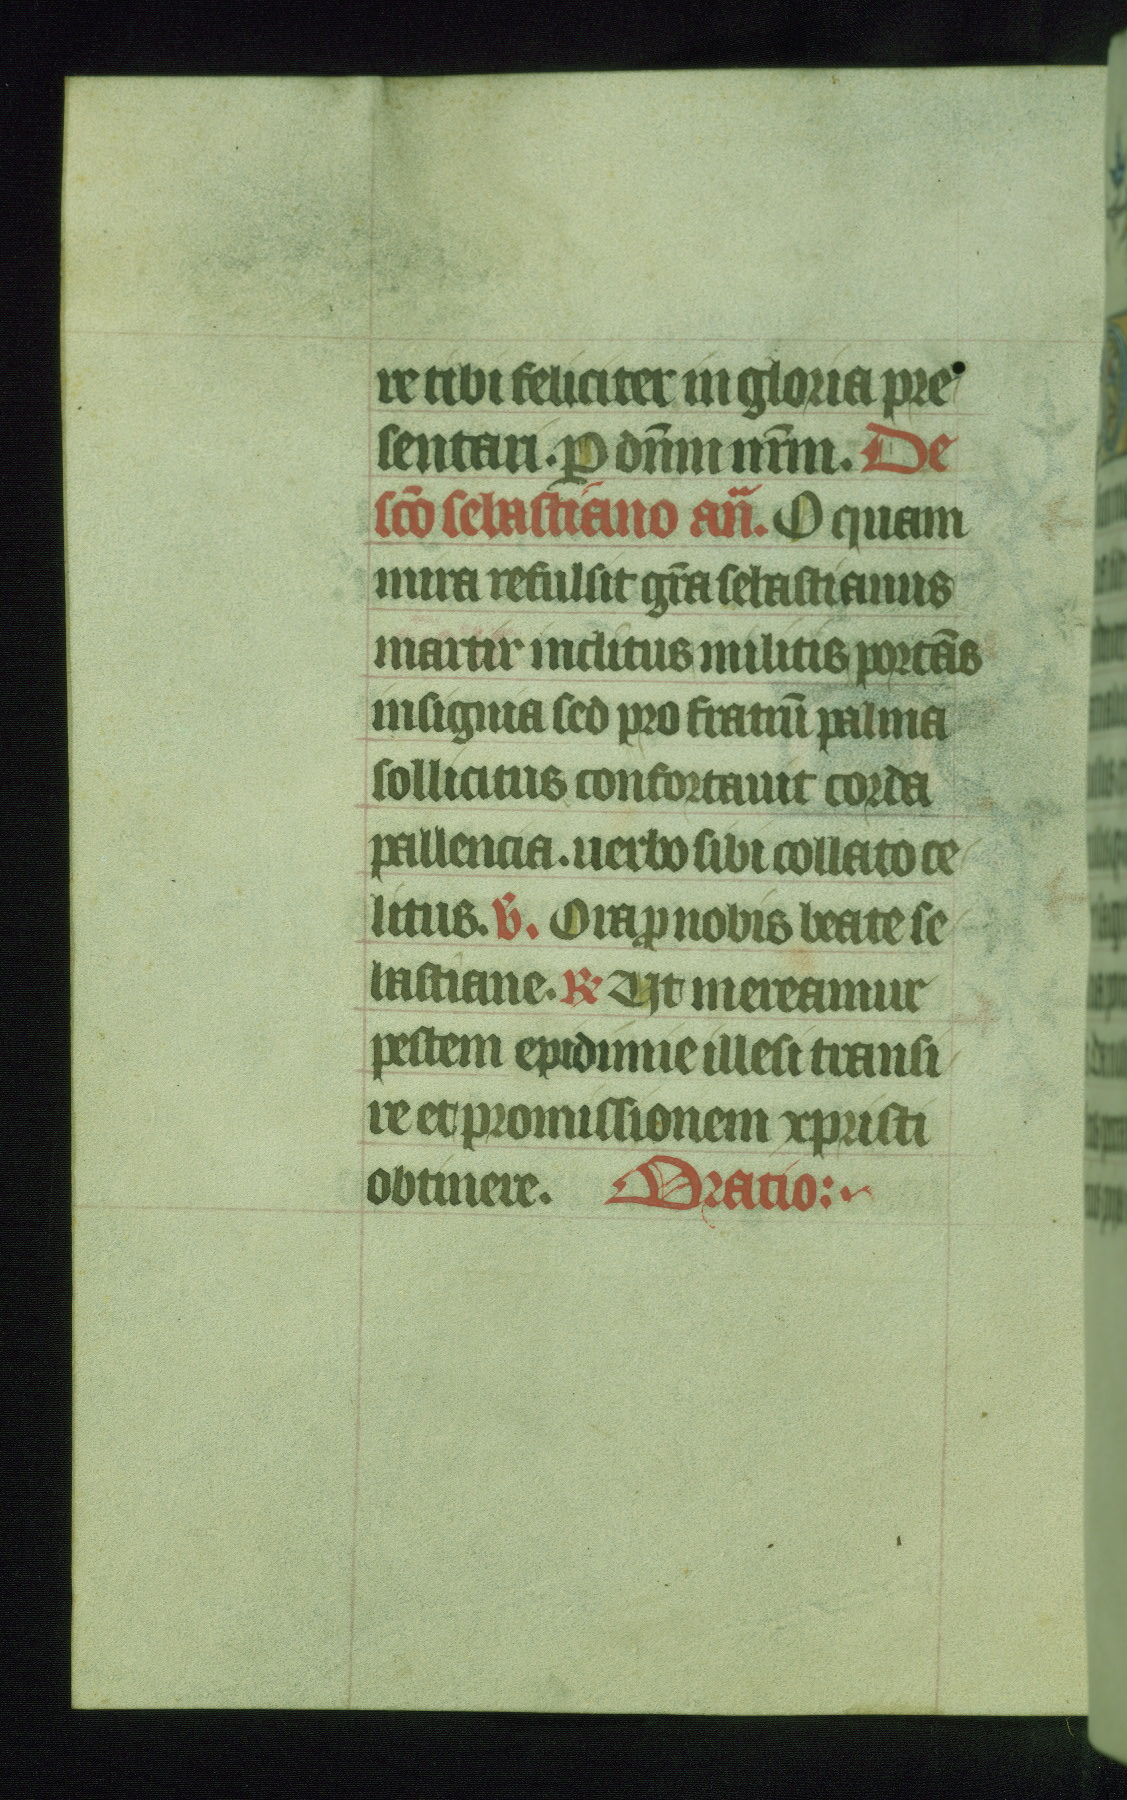 re tibi feliciter in gloria pre
sentari. P dn̄m nr̄m. De
sc̄o sebastiano an̄. O quam
mira refulsit gr̄a sebastianus
martir inclitus militis portās
insignia sed pro fratrū palma
sollicitus confortauit corda
pallencia. uerbo sibi collato ce
litus. v̄. Ora ꝓ nobis beate se
bastiane. ℟ Ut mereamur
pestem epidimie illesi transi
re et promissionem xpristi
obtinere. Oratio: